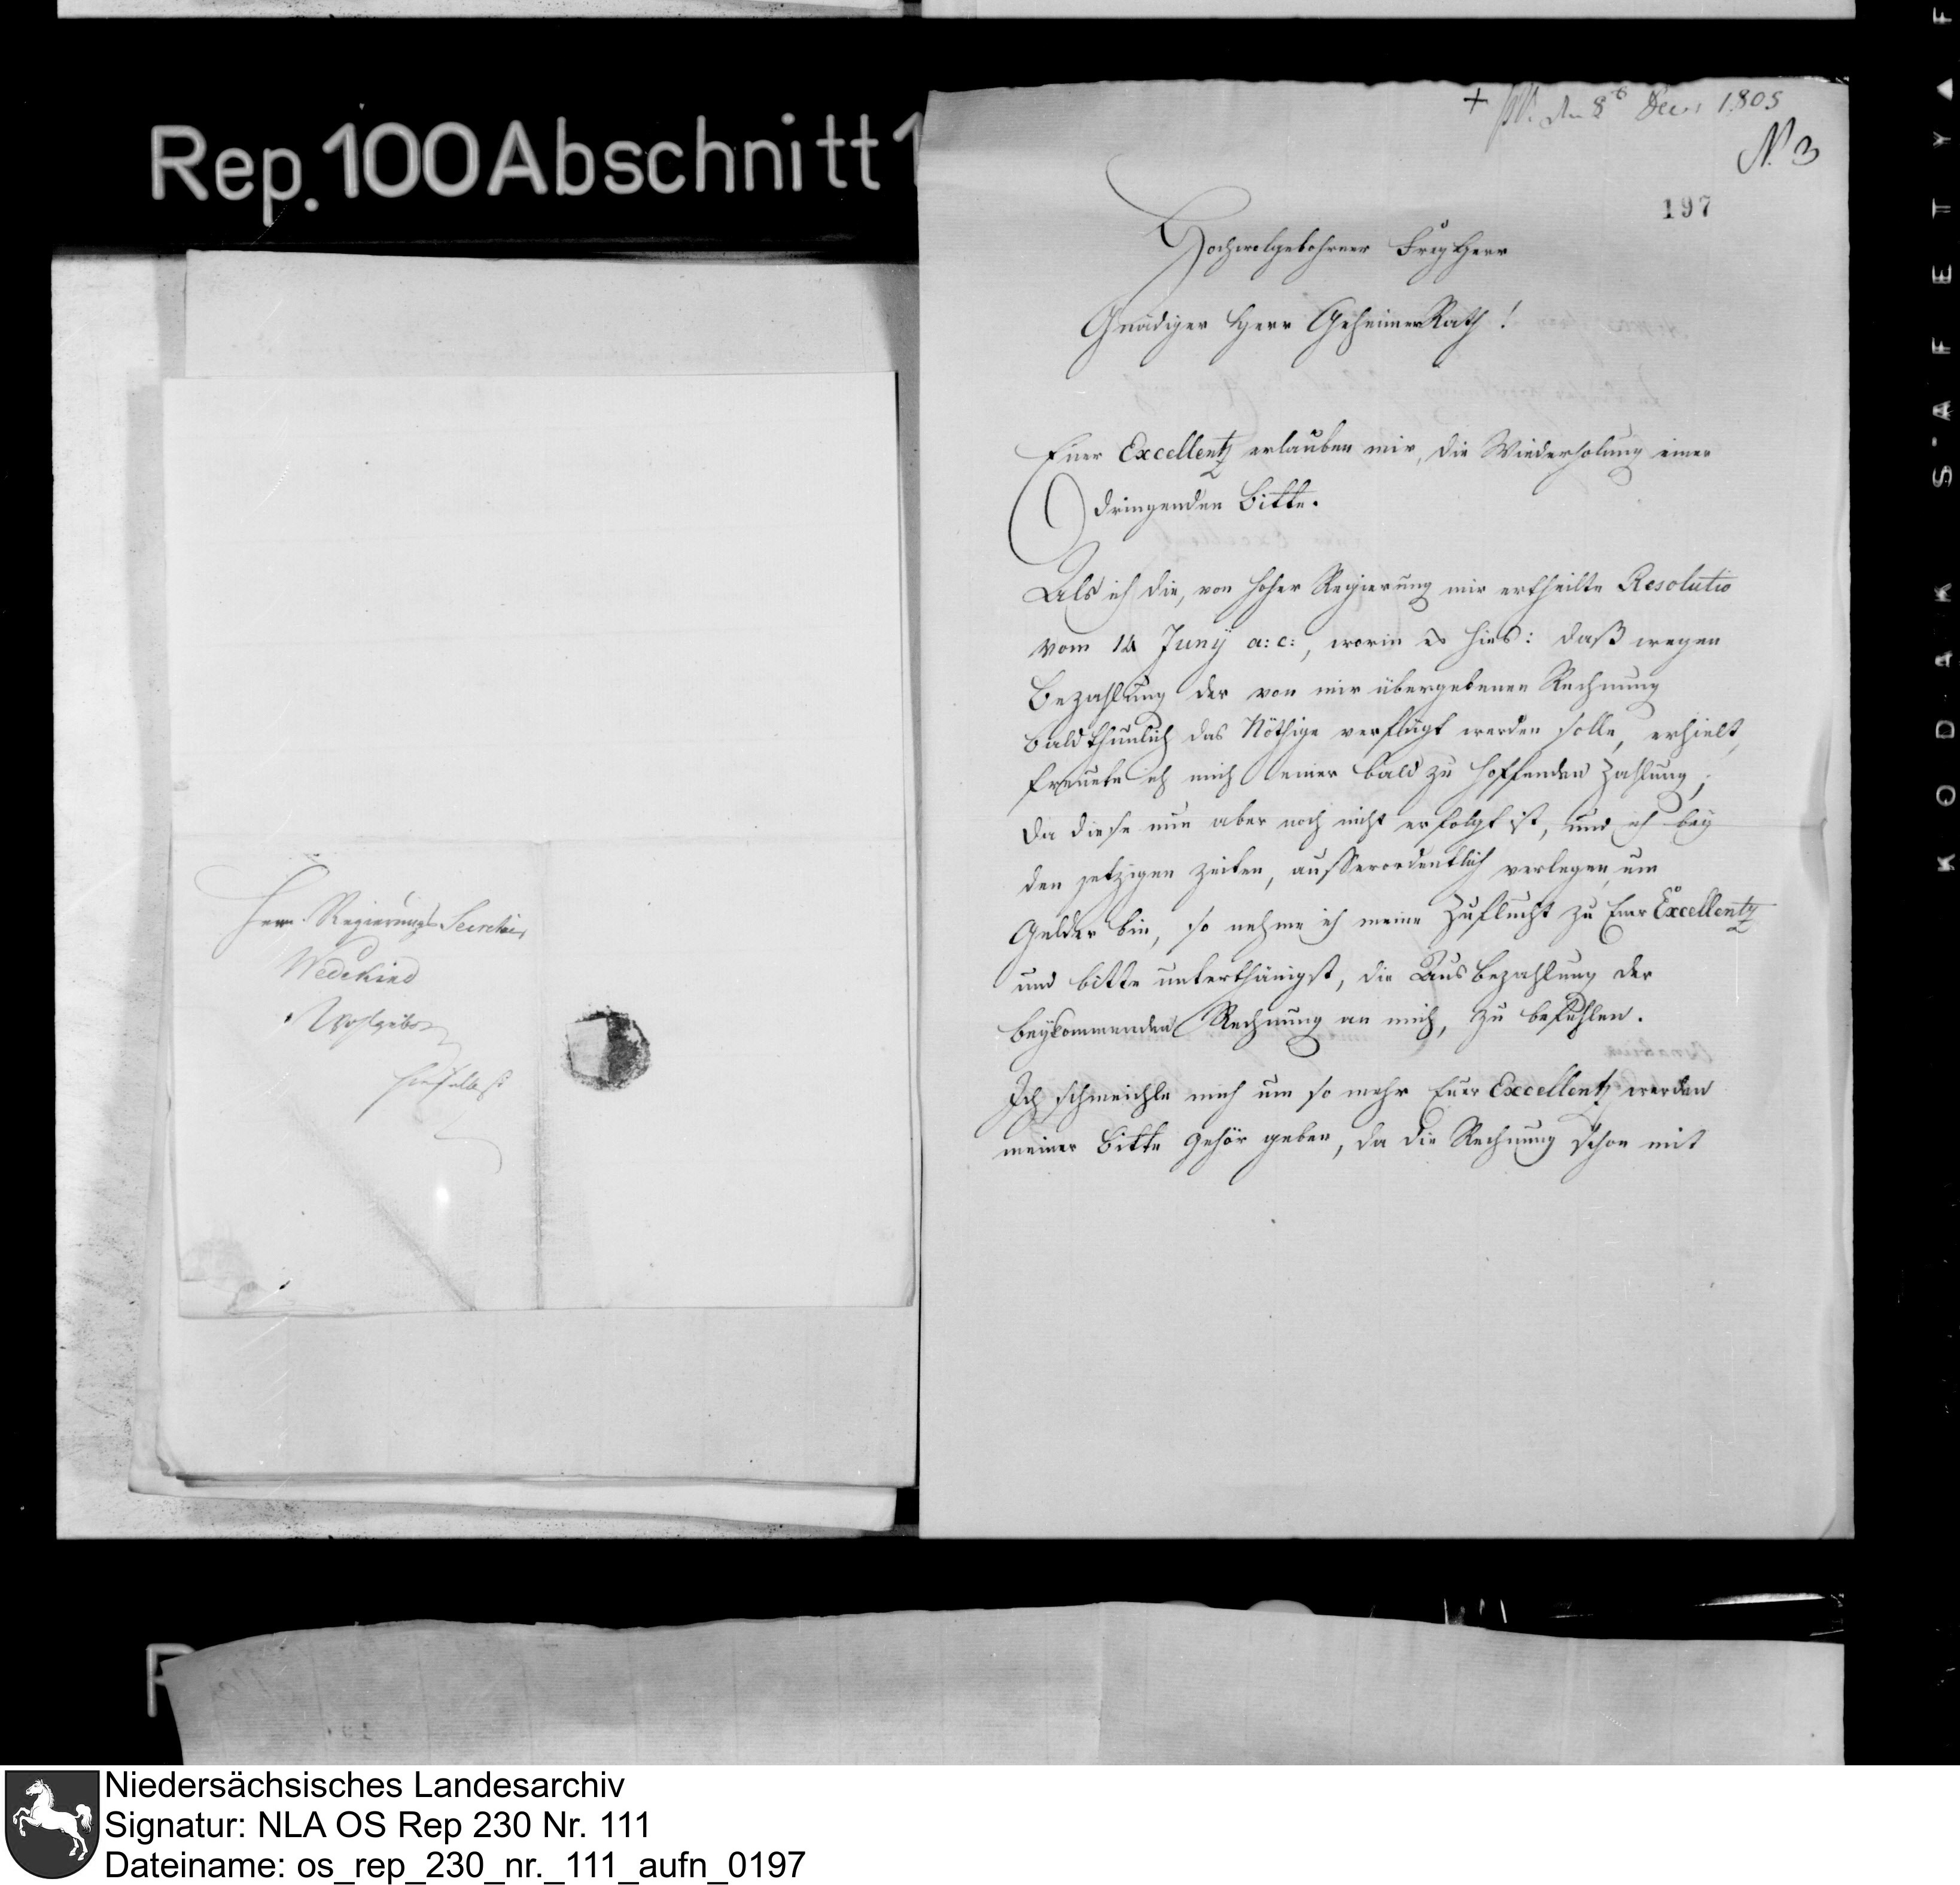 Rep. 100 Abschnitt 1
Herrn Regierungs Secretair
Wedekind
Wohlgebor
hieselbst
+ den 8t Decr 1805
N. 3
197
Hochwolgebohrner FreyHerr
Gnädiger Herr GeheimerRath!
Euer Excellentz erlauben mir, die Wiederholung einer
dringenden Bitte.
Als ich die, von hoher Regierung mir ertheilte Resolutio
vom 14 Junÿ a: c:, worin es hies: daß wegen
Bezahlung der von mir übergebenen Rechnung
baldthunlich das Nöthige verfügt werden solle, erhielt,
freuete ich mich einer bald zu hoffenden Zahlung;
da diese nun aber noch nicht erfolgt ist, und ich bey
den jetzigen Zeiten, ausserordentlich verlegen um
Gelder bin, so nehme ich meine Zuflucht zu Euer Excellentz
und bitte unterthänigst, die Ausbezahlung der
beykommenden Rechnung an mich, zu befehlen.
Ich schmeichle mich um so mehr Euer Excellentz werden
meiner Bitte Gehör geben, da die Rechnung schon mit
KODAK SAFETY
Niedersächsisches Landesarchiv
Signatur: NLA OS Rep 230 Nr. 111
Dateiname: os_rep_230_nr._111_aufn_0197